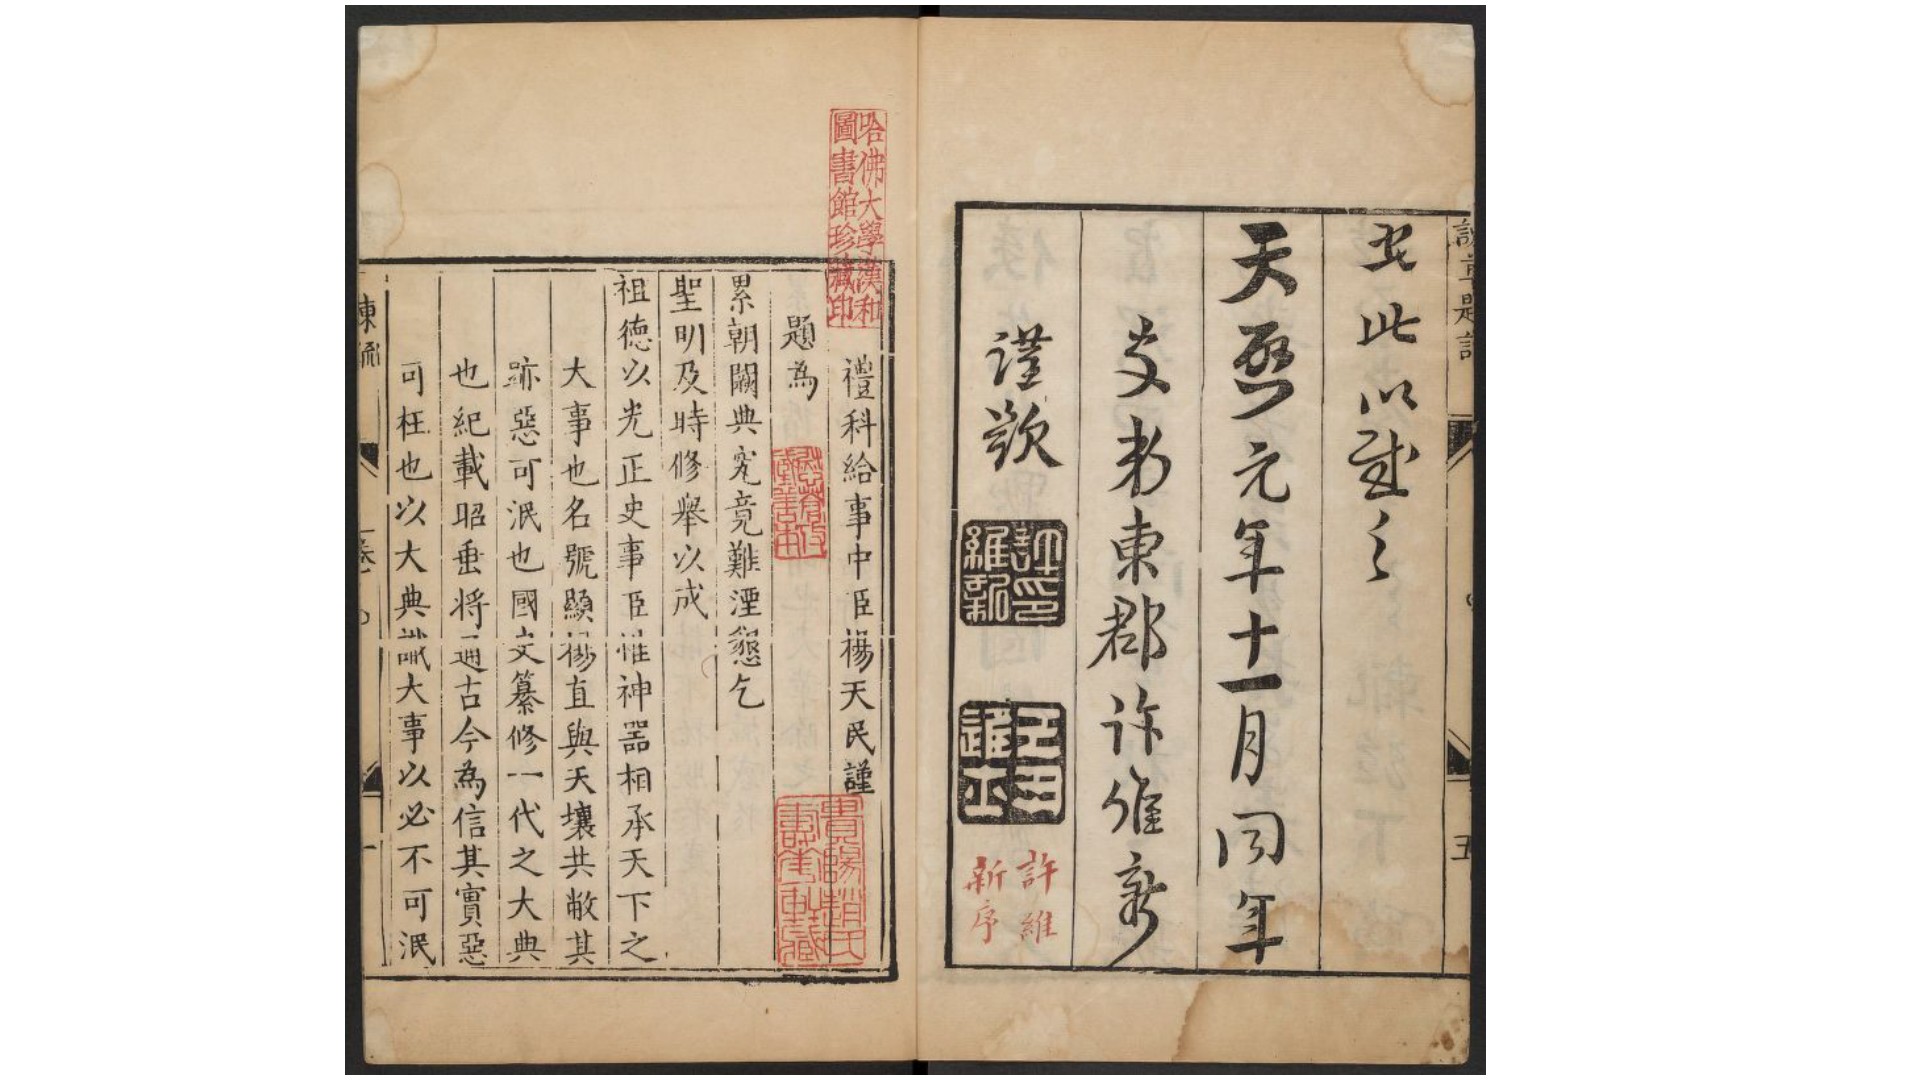 天啓元年十一月同年
友弟東郡許維新
謹敘
許維
新序
哈佛大學漢和
圖書館珍藏印
禮科給事中臣楊天民謹
題為
累朝闕典究竟難湮懇乞
聖明及時修舉以成
祖德以光正史事臣惟神器相承天下之
大事也名號顯揚直與天壤共敝其
跡惡可泯也國文纂修一代之大典
也紀載昭垂將通古今為信其實惡
可枉也以大典議大事以必不可泯